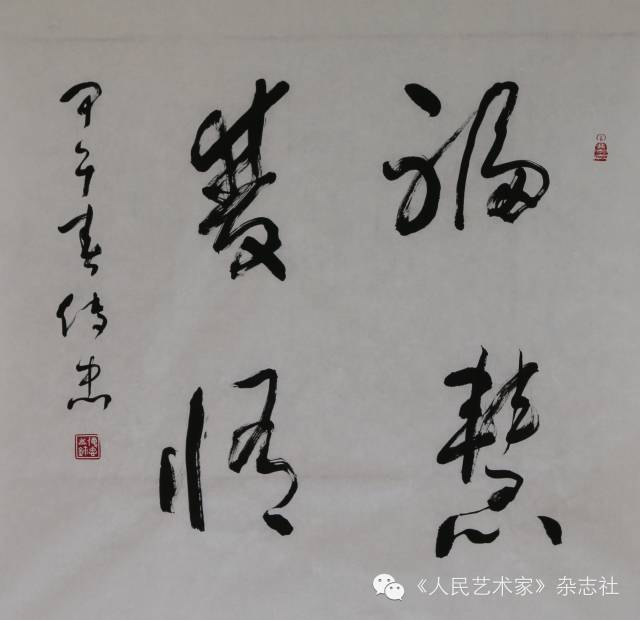 福慧
雙修
甲午春傳忠
《人民艺术家》杂志社